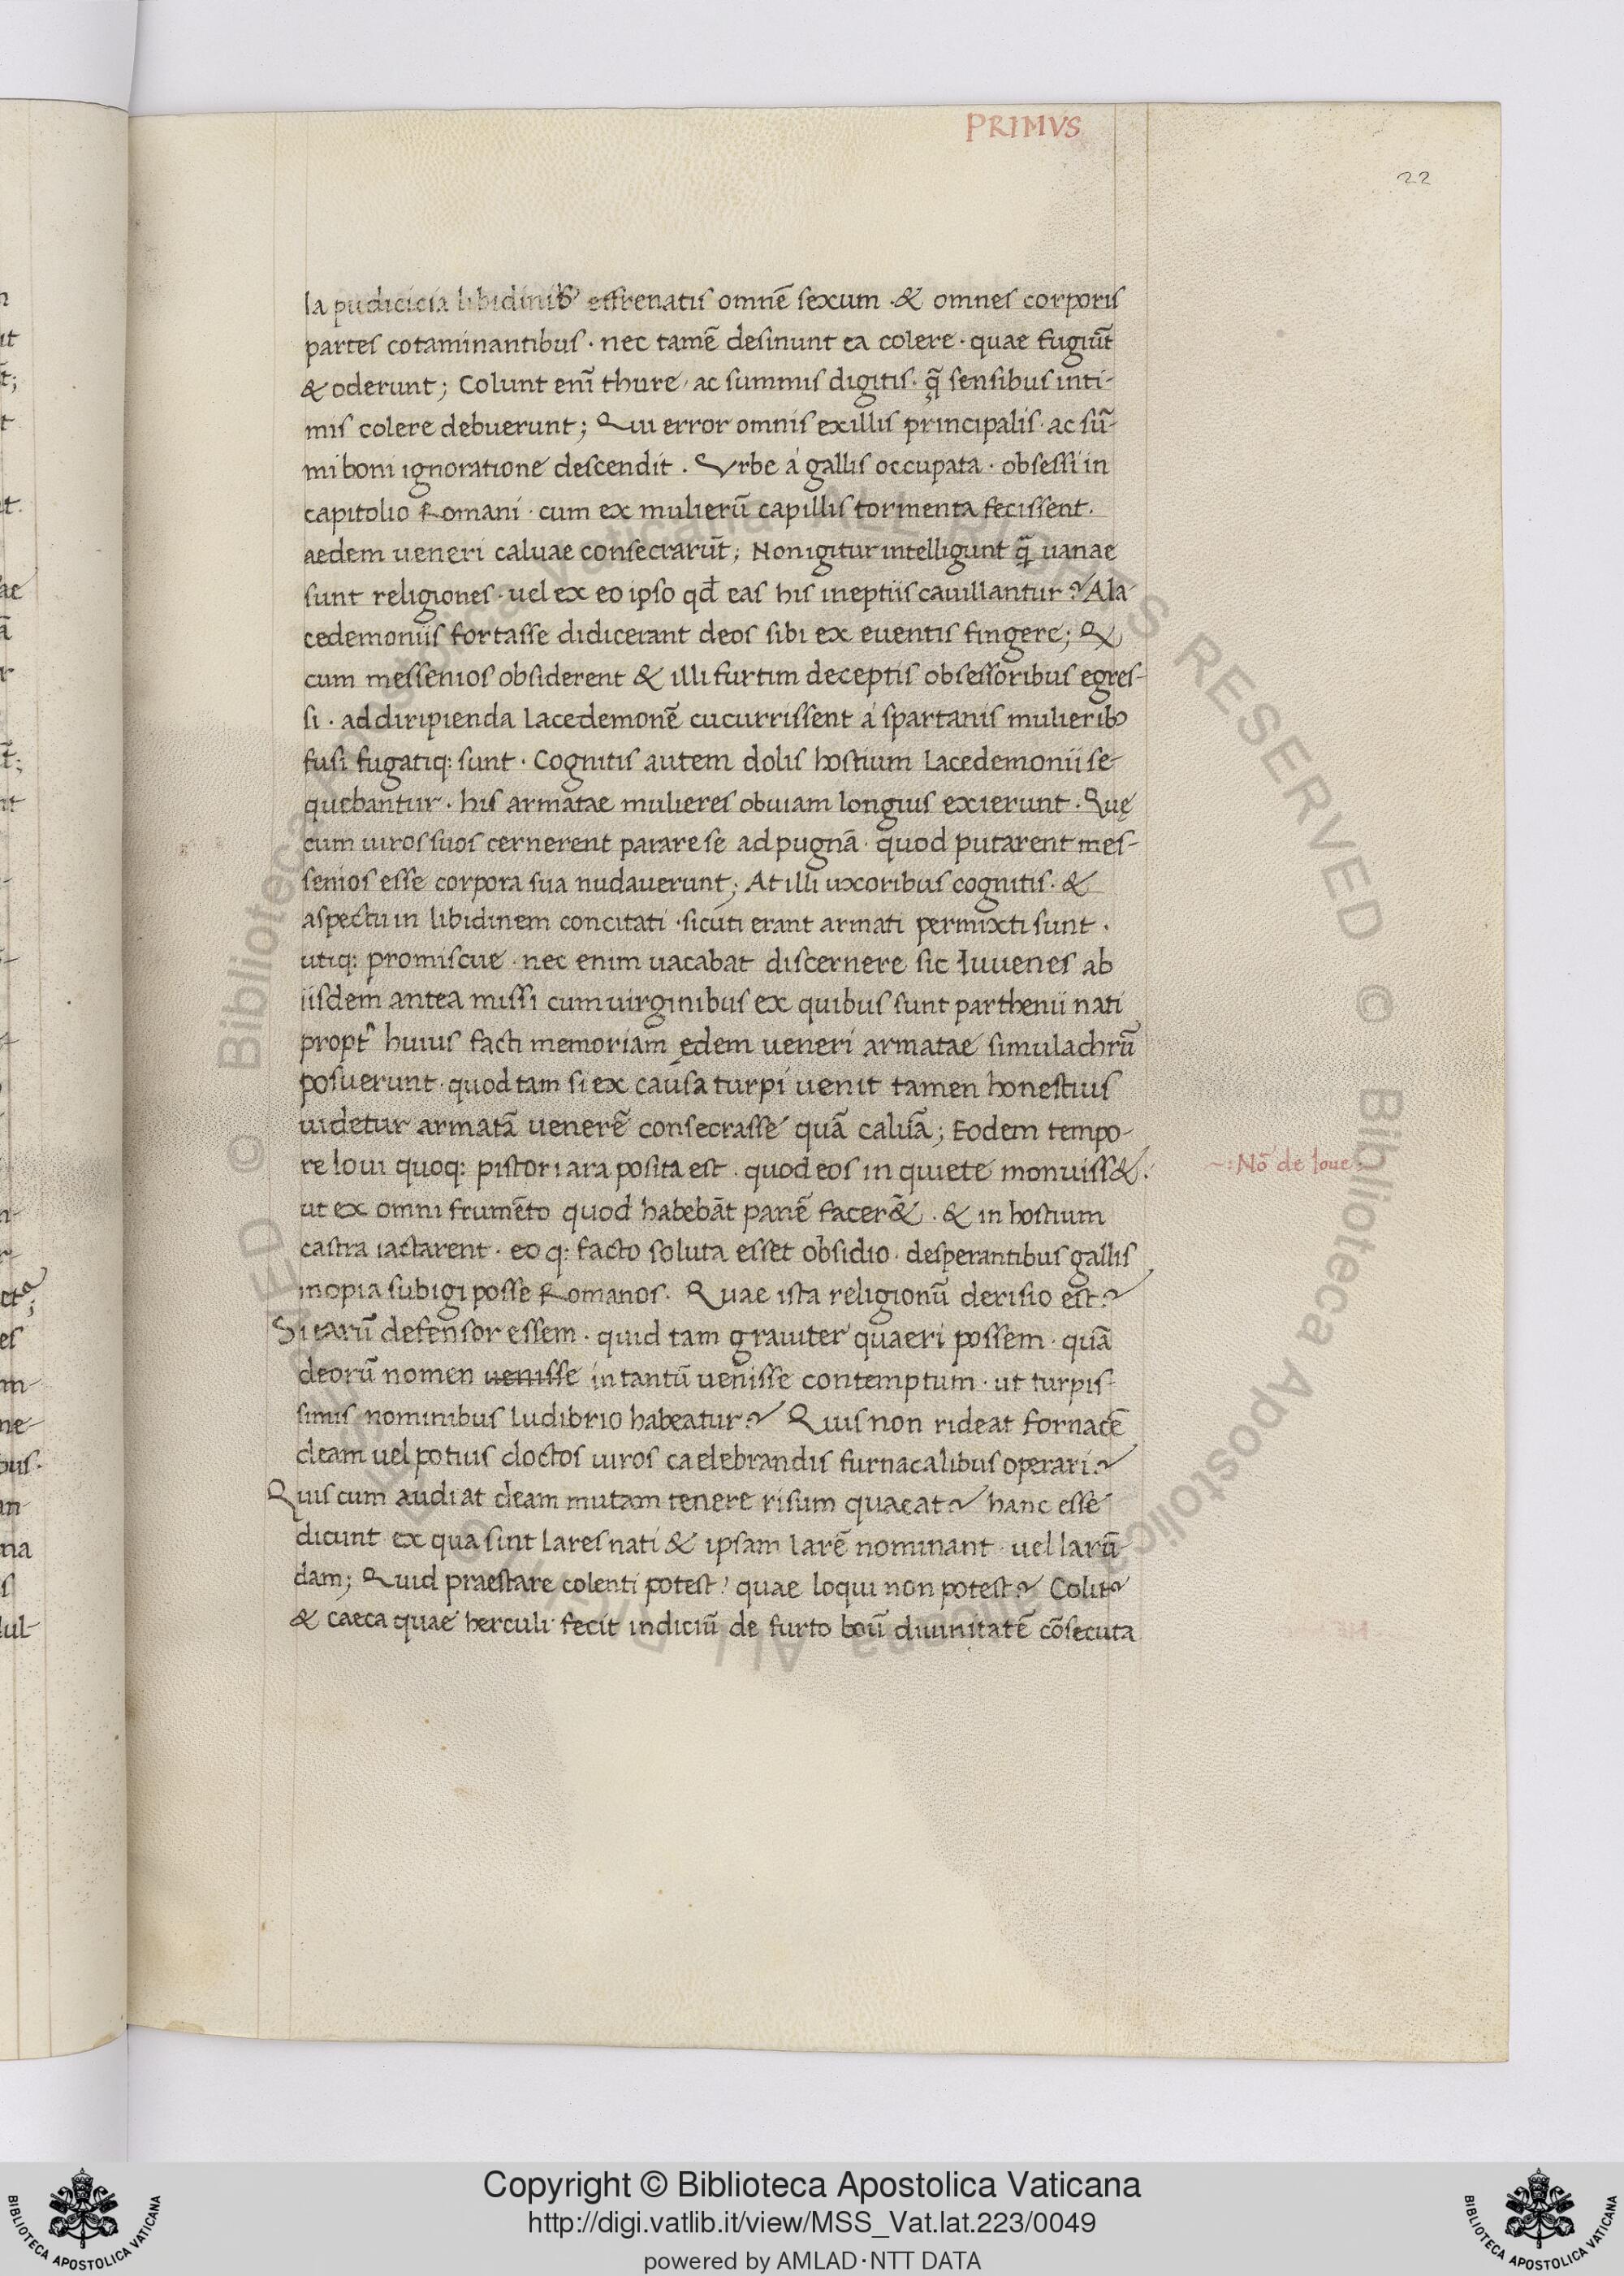 PRIMVS
22
la pudicicia libidinib⁹ effrenatis omnē sexum · & omnes corporis
partes cotaminantibus · nec tamē desinunt ea colere · quae fugiūt
& oderunt; Colunt enī thure, ac summis digitis · q̄ sensibus inti-
mis colere debuerunt; Qui error omnis ex illis principalis · ac sū-
mi boni ignoratione descendit · Vrbe á gallis occupata · obsessi in
capitolio Romani · cum ex mulierū capillis tormenta fecissent ·
aedem ueneri caluae consecrarūt; Non igitur intelligunt q̄ uanae
sunt religiones · uel ex eo ipso qđ eas his ineptiis cauillantur? A la-
cedemoniis fortasse didicerant deos sibi ex euentis fingere; Q
cum messenios obsiderent & illi furtim deceptis obsessoribus egres-
si · ad diripienda lacedemonē cucurrissent á spartanis mulierib⁹
fusi fugatiq: sunt · Cognitis autem dolis hostium Lacedemonii se-
quebantur · his armatae mulieres obuiam longius exierunt · Quę
cum uiros suos cernerent parare se ad pugnā · quod putarent mes-
senios esse corpora sua nudauerunt; At illi uxoribus cognitis · &
aspectu in libidinem concitati · sicuti erant armati permixti sunt ·
utiq: promiscue · nec enim uacabat discernere sic Iuuenes ab
iisdem antea missi cum uirginibus ex quibus sunt parthenii nati
propt̉ huius facti memoriam ędem ueneri armatae simulachrū
posuerunt · quod tam si ex causa turpi uenit tamen honestius
uidetur armatā uenerē consecrasse quā caluā; Eodem tempo-
re Ioui quoq: pistori ara posita est · quod eos in quiete monuiss& ·
ut ex omni frumēto quod habebāt panē facer& · & in hostium
castra iactarent · eo q: facto soluta esset obsidio · desperantibus gallis
inopia subigi posse Romanos · Quae ista religionū derisio est?
Si earū defensor essem · quid tam grauiter quaeri possem · quā
deorū nomen uenisse in tantū uenisse contemptum · ut turpis-
simis nominibus ludibrio habeatur? Quis non rideat fornacē
deam uel potius doctos uiros caelebrandis furnacalibus operari?
Quis cum audiat deam mutam tenere risum quaeat? hanc esse
dicunt ex qua sint Lares nati & ipsam larē nominant · uel larū-
dam; Quid praestare colenti potest? quae loqui non potest? Colit?
& caeca quae herculi fecit indiciū de furto boū diuinitatē cōsecuta
~: Nō de Ioue:
Copyright © Biblioteca Apostolica Vaticana
http://digi.vatlib.it/view/MSS_Vat.lat.223/0049
powered by AMLAD·NTT DATA
BIBLIOTECA APOSTOLICA VATICANA
BIBLIOTECA APOSTOLICA VATICANA